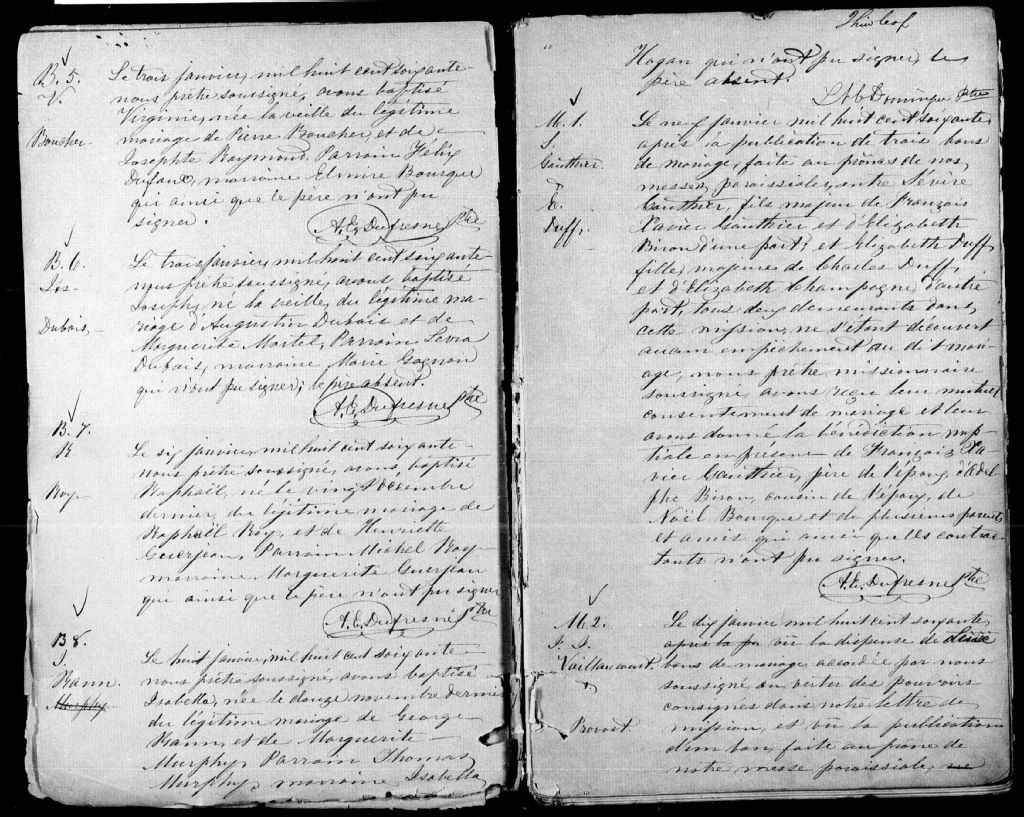 B. 5.
V.
Boucher
Le trois janvier, mil huit cent soixante-
nous prêtre soussigné, avons baptisé
Virginie, née la veille du légitime
mariage de Pierre Boucher, et de
Josephte Raymond. Parrain Felix
Dufaux, marraine Elmire Bourque
qui ainsi que le père n'ont pu
signer.
A. E. Dufresne Ptre
B. 6.
Jos-
Dubois,
Le trois janvier, mil huit cent soixante-
nous prêtre soussigné, avons baptisé
Joseph, né la veille, du légitime ma-
riage d'Augustin Dubois et de
Marguerite Martel, Parrain
Dubois, marraine Marie Gagnon
qui n'ont pu signer; le père absent.
A. E. Dufresne Ptre
B. 7.
R
Roy-
Le six janvier, mil huit cent soixante-
nous prêtre soussigné, avons, baptisé
Raphaël, né le vingt décembre
dernier, du légitime mariage de
Raphaël Roy, et de Henriette
Guerjean, Parrain Michel Roy-
marraine Marguerite Guerjean
qui ainsi que le père n'ont pu signer
A. E. Dufresne Ptre
B 8.
I.
Rann.
Murphy
Le huit janvier, mil huit cent soixante-
nous prêtre soussigné, avons baptisé
Isabella, née le douze novembre dernier
du légitime mariage de George
Rann, et de Marguerite
Murphy, Parrain Thomas
Murphy, marraine Isabella
Hogan qui n'ont pu signer, le
père absent
Dominique Ptre
M. 1.
S.
Gauthier
E.
Duff,
Le neuf janvier mil huit cent soixante,
après la publication de trois bans
de mariage, faite au prônes de nos
messes paroissiales, entre Sévère
Gauthier, fils majeur de François
Xavier Gauthier et d'Elizabeth
Biron d'une part; et Elizabeth Duff,
fille majeure de Charles Duff,
et d'Elizabeth Champagne, d'autre
part, tous deux demeurants dans
cette mission, ne s'étant découvert
aucun empêchement au dit mari-
age, nous, prêtre missionnaire
soussigné, avons reçu leur mutuel
consentement de mariage et leur
avons donné la bénédiction nup-
tiale en présence de François Xa-
vier Gauthier, père de l'époux, d'Adol-
phe Biron, cousin de l'époux, de
Noël Bourque et de plusieurs parents
et amis qui ainsi que les contrac-
tants n'ont pu signer.
A. E. Dufresne Ptre
M 2.
J. J.
Vaillancourt.
Provost.
Le dix janvier mil huit cent soixante,
après la pu vû la dispense de deux
bans de mariage accordée par nous
soussigné en vertu des pouvoirs
consignés dans notre lettre de
mission, et vû la publication
d'un ban, faite au prone de
notre messe paroissiale,